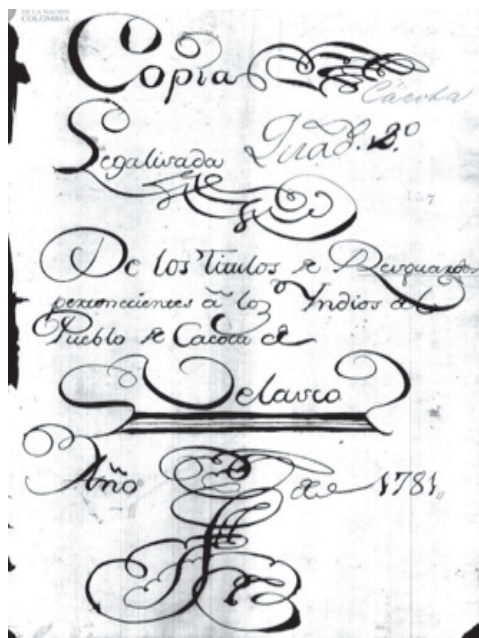 DE LA NACIÓN
COLOMBIA
Copia
Cácota
Legalizada Quad. 2.º
157
De los Titulos de Resguardos
pertenecientes â los Yndios del
Pueblo de Cacota de
Velasco
Año de 1781